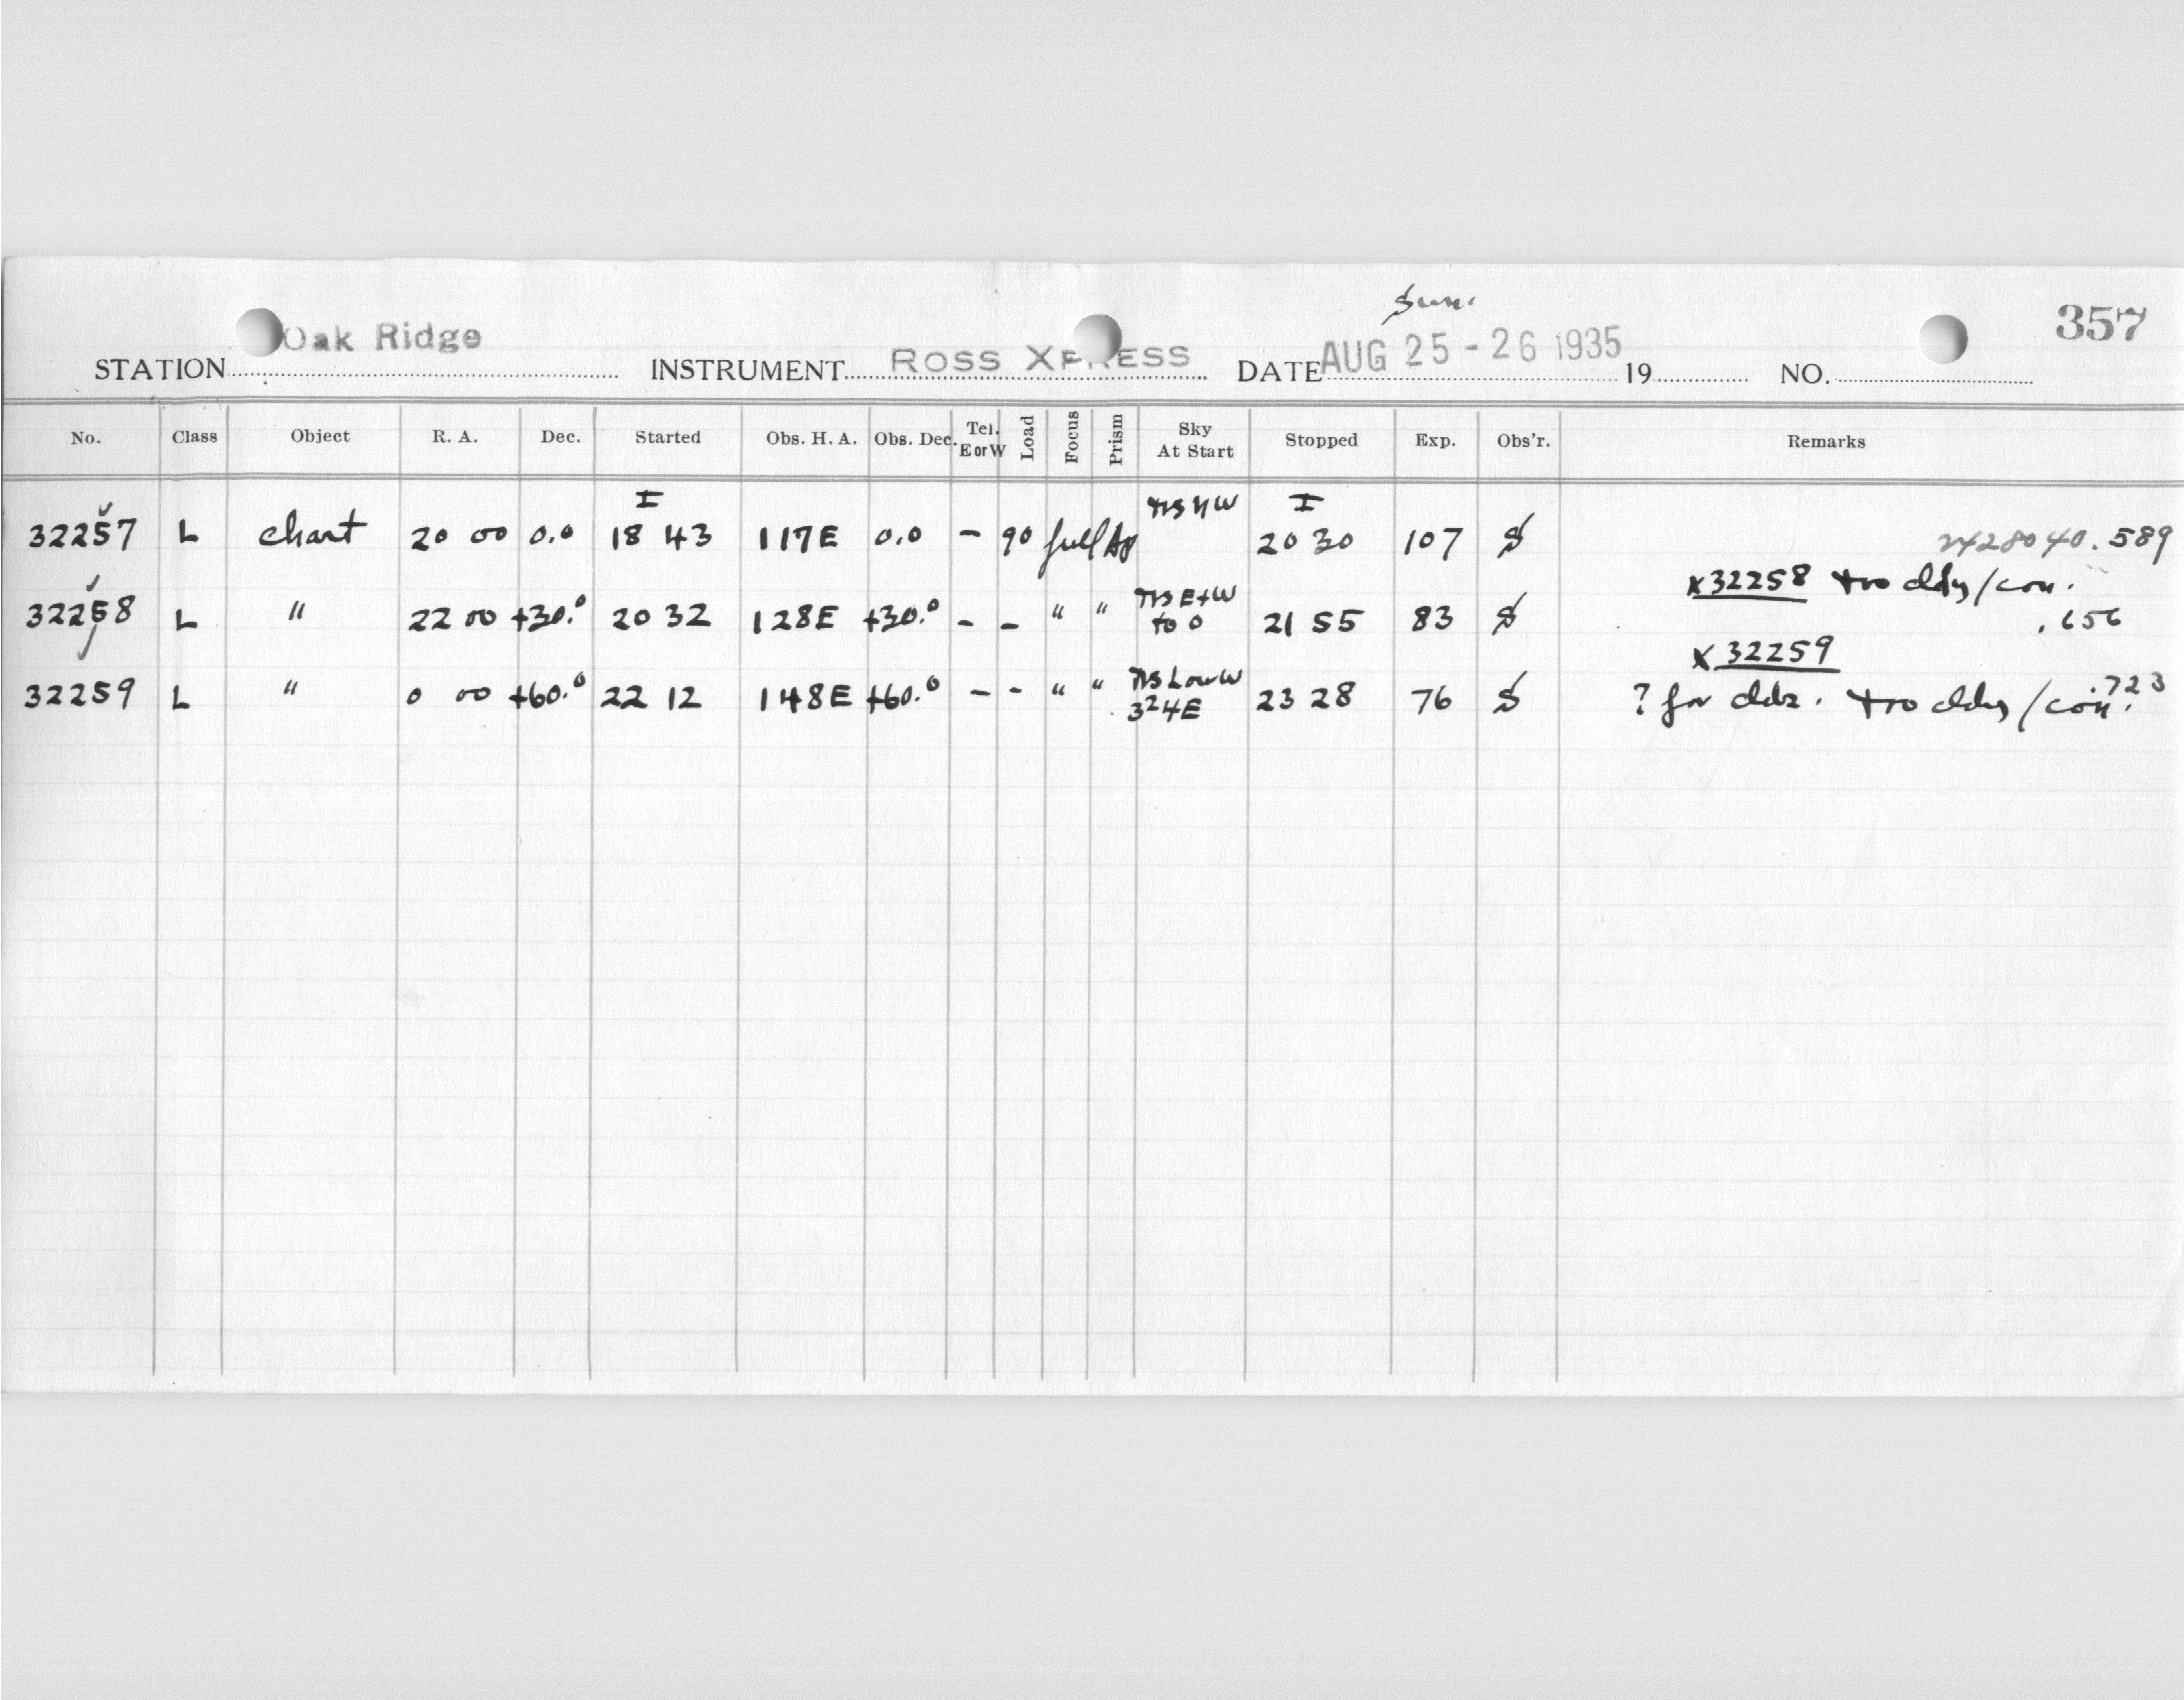 Sun.
357
STATION Oak Ridge INSTRUMENT ROSS XPRESS DATE AUG 25-26 1935 19 NO.
No. Class Object R. A. Dec. Started Obs. H. A. Obs. Dec. Tel. E or W Load Focus Prism Sky At Start Stopped Exp. Obs'r. Remarks
I I
32257 L chart 20 00 0.0 18 43 117E 0.0 - 90 full Ap 20 30 107 S 2428040.589
x32258
32258 L " 22 00 +30.0 20 32 128E +30.0 - - " " E+W to 0 21 55 83 S .656
x 32259
32259 L " 0 00 +60.0 22 12 148E +60.0 - - " " Low W 3 2 4E 23 28 76 S ? for .723